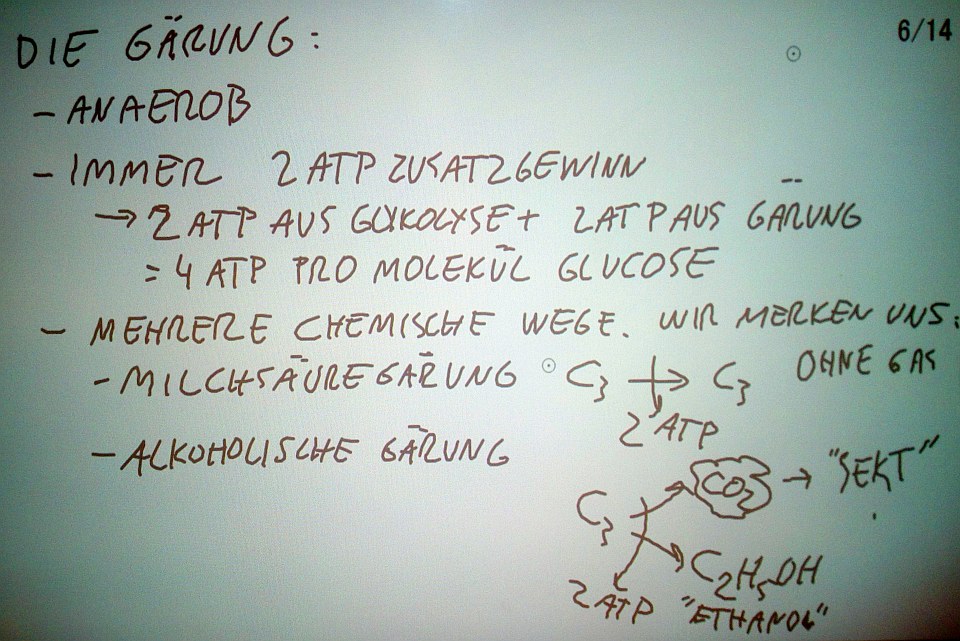 6/14
DIE GÄRUNG:
- ANAEROB
- IMMER 2 ATP ZUSATZGEWINN
→ 2 ATP AUS GLYKOLYSE + 2 ATP AUS GÄRUNG
= 4 ATP PRO MOLEKÜL GLUCOSE
- MEHRERE CHEMISCHE WEGE. WIR MERKEN UNS:
- MILCHSÄUREGÄRUNG C3 → C3 OHNE GAS
2 ATP
- ALKOHOLISCHE GÄRUNG
CO2 → "SEKT"
C3
C2H5OH
2 ATP "ETHANOL"